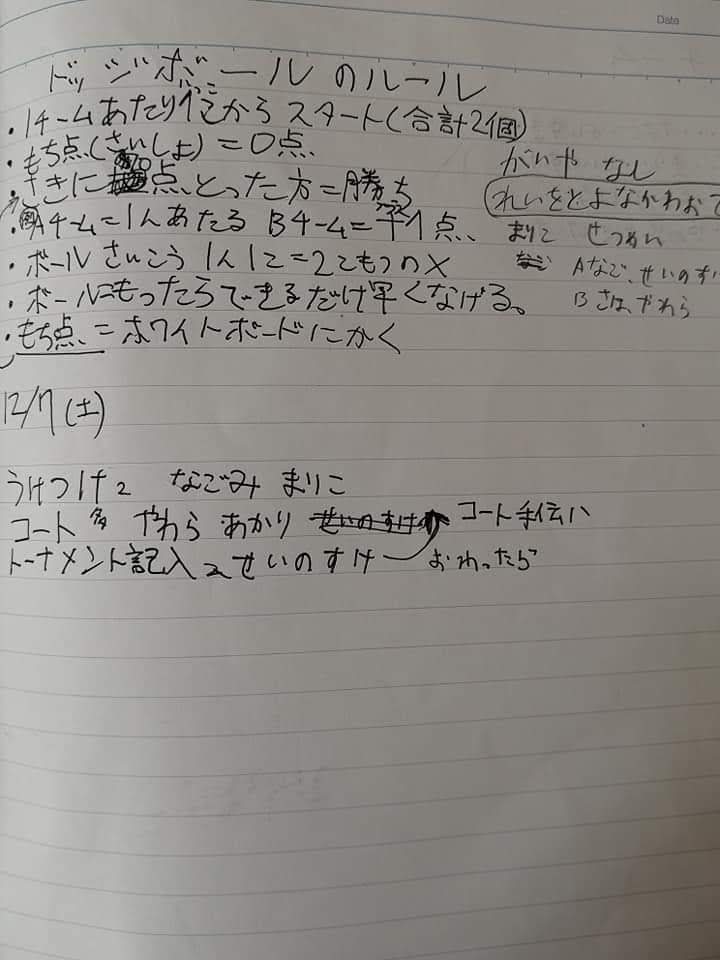 Date
ドッジボールのルール
・1チームあたり1こから スタート(合計2個)
・もち点(さいしょ)=0点
・さきに 点とった方=勝ち
・例Aチーム=1人あたる Bチーム= 1点、
・ボール さいこう 1人1こ=2こもつの×
・ボールもったらできるだけ早くなげる。
・もち点=ホワイトボードにかく
がいや なし
れいをとよなかわおで
まりこ せつめい
Aなご、せいのすけ
B さほ、やわら
12/7(土)
うけつけ2 なごみ まりこ
コート やわら あかり せいのすけ コート手伝い
トーナメント記入2 せいのすけ おわったら